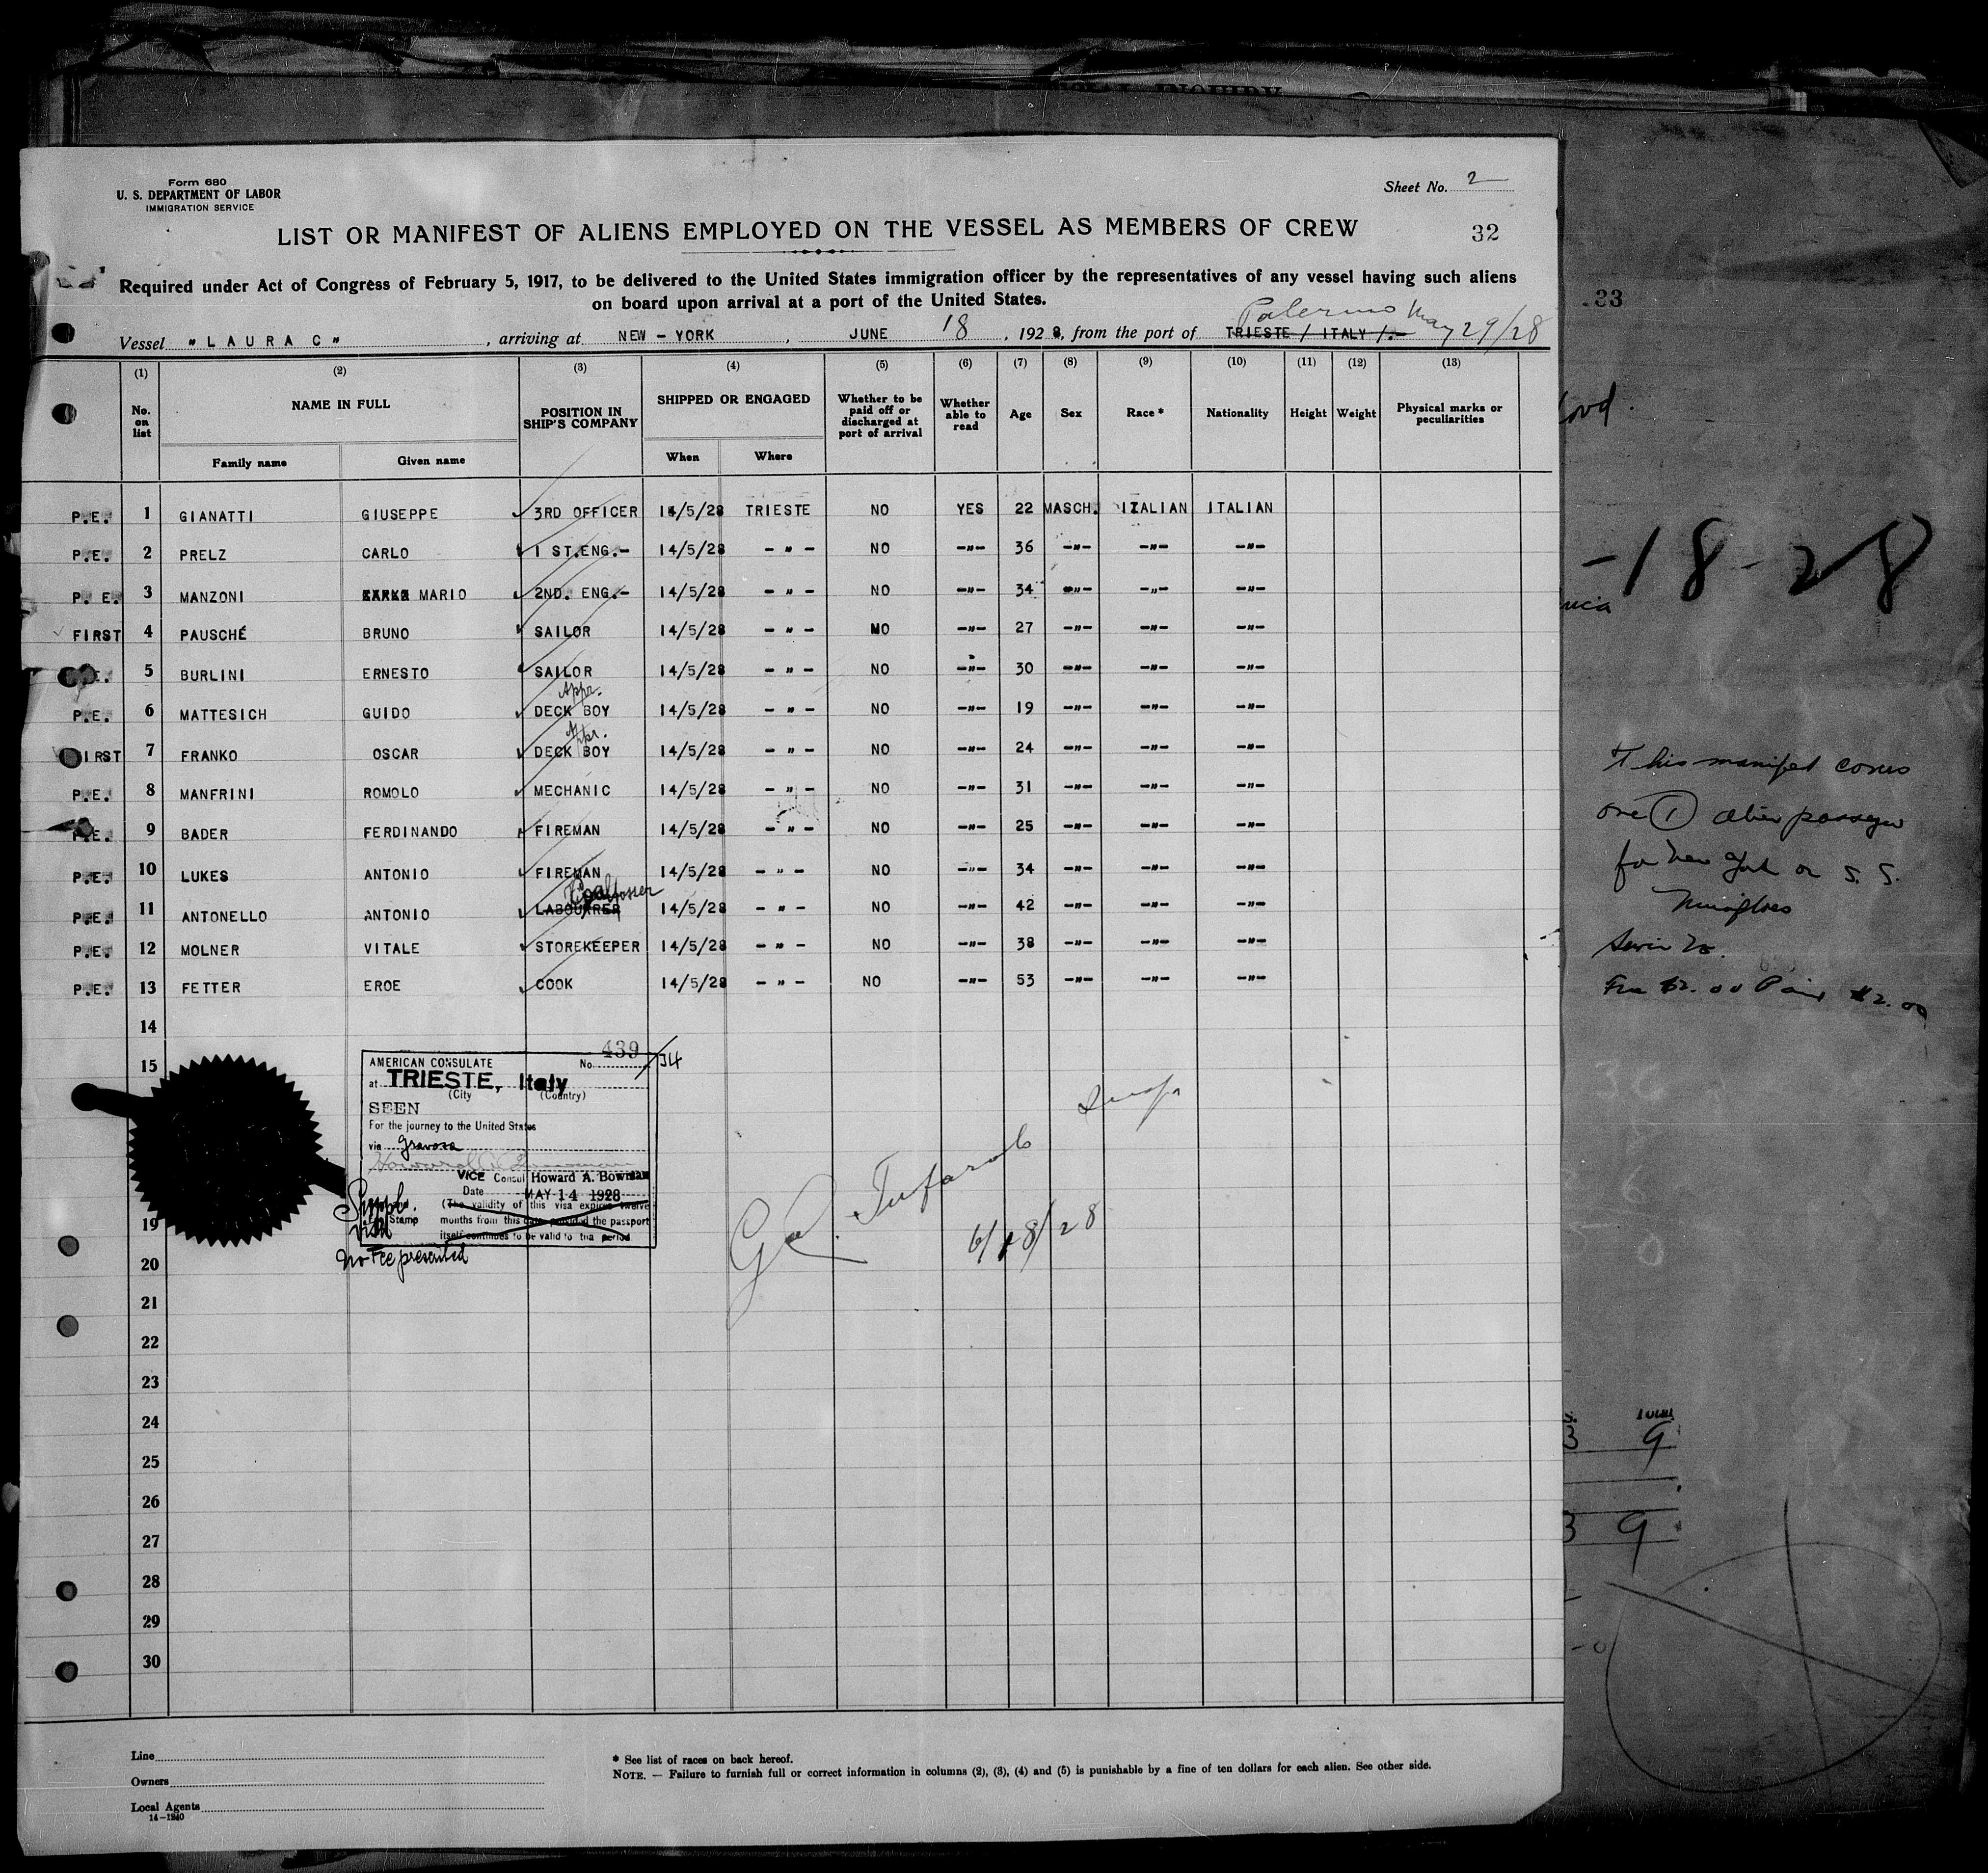 Form 680
U. S. DEPARTMENT OF LABOR
IMMIGRATION SERVICE
Sheet No. 2
LIST OR MANIFEST OF ALIENS EMPLOYED ON THE VESSEL AS MEMBERS OF CREW
32
Required under Act of Congress of February 5, 1917, to be delivered to the United States immigration officer by the representatives of any vessel having such aliens
on board upon arrival at a port of the United States.
Palermo May 29/28
Vessel "LAURA C", arriving at NEW-YORK, JUNE 18, 1928, from the port of TRIESTE / ITALY /.-
(1) (2) (3) (4) (5) (6) (7) (8) (9) (10) (11) (12) (13)
No. on list NAME IN FULL POSITION IN SHIP'S COMPANY SHIPPED OR ENGAGED Whether to be paid off or discharged at port of arrival Whether able to read Age Sex Race * Nationality Height Weight Physical marks or peculiarities
Family name Given name When Where
P.E. 1 GIANATTI GIUSEPPE 3RD OFFICER 14/5/28 TRIESTE NO YES 22 MASCH. ITALIAN ITALIAN
P.E. 2 PRELZ CARLO 1 ST.ENG.- 14/5/28 - " - NO -"- 36 -"- -"- -"-
P. E. 3 MANZONI MARIO 2ND. ENG.- 14/5/28 - " - NO -"- 34 -"- -"- -"-
FIRST 4 PAUSCHÉ BRUNO SAILOR 14/5/28 - " - NO -"- 27 -"- -"- -"-
E. 5 BURLINI ERNESTO SAILOR 14/5/28 - " - NO -"- 30 -"- -"- -"-
Appr.
P.E. 6 MATTESICH GUIDO DECK BOY 14/5/28 - " - NO -"- 19 -"- -"- -"-
Appr.
FIRST 7 FRANKO OSCAR DECK BOY 14/5/28 - " - NO -"- 24 -"- -"- -"-
P.E. 8 MANFRINI ROMOLO MECHANIC 14/5/28 - " - NO -"- 31 -"- -"- -"-
P.E. 9 BADER FERDINANDO FIREMAN 14/5/28 - " - NO -"- 25 -"- -"- -"-
P.E. 10 LUKES ANTONIO FIREMAN 14/5/28 - " - NO -"- 34 -"- -"- -"-
Coalpasser
P.E. 11 ANTONELLO ANTONIO LABOURRER 14/5/28 - " - NO -"- 42 -"- -"- -"-
P.E. 12 MOLNER VITALE STOREKEEPER 14/5/28 - " - NO -"- 38 -"- -"- -"-
P.E. 13 FETTER EROE COOK 14/5/28 - " - NO -"- 53 -"- -"- -"-
14
15
19
20
21
22
23
24
25
26
27
28
29
30
AMERICAN CONSULATE No. 439/34
at TRIESTE, Italy
(City (Country)
SEEN
For the journey to the United States
via Gravosa
VICE Consul Howard A. Bowman
Date MAY 14 1928
(The validity of this visa expires twelve
months from this date provided the passport
itself continues to be valid to tha period
Stamp
Suppl.
Visa
No Fee presented
Insp.
6/18/28
Line
Owners
Local Agents
14-1240
* See list of races on back hereof.
NOTE. — Failure to furnish full or correct information in columns (2), (3), (4) and (5) is punishable by a fine of ten dollars for each alien. See other side.
33
-18-28
This manifest covers
one (1) alien passenger
for New York on S. S.
Fee $2.00 Paid $2.00
Total
3 9
3 9